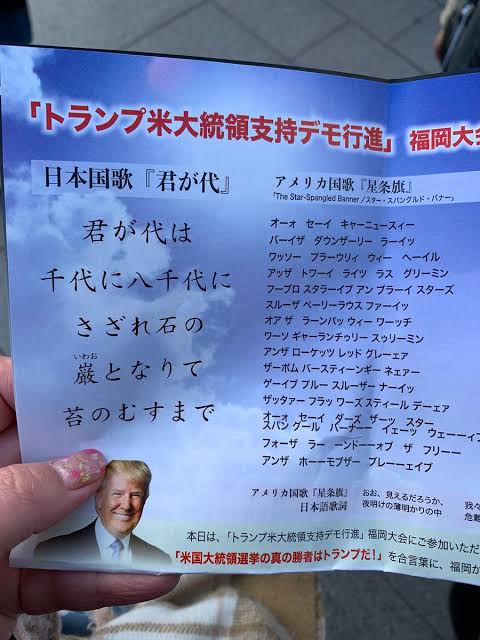 「トランプ米大統領支持デモ行進」 福岡大会
日本国歌『君が代』
君が代は
千代に八千代に
さざれ石の
いわお
巌となりて
苔のむすまで
アメリカ国歌『星条旗』
「The Star-Spangled Banner／スター・スパングルド・バナー」
オーォ セーイ キャーニュースィー
バーイザ ダウンザーリー ラーイッ
ワッソー プラーウリィ ウィー ヘーイル
アッザ トワーイ ライツ ラス グリーミン
フープロ スタラーイプ アン ブラーイ スターズ
スルーザ ペーリーラウス ファーイッ
オア ザ ラーンパッ ウィー ワーッチ
ワーソ ギャーランチゥリー スゥリーミン
アンザ ローケッツ レッド グレーェア
ザーボム バースティーンギー ネェアー
ゲーイブ プルー スルーザー ナーイッ
ザッタァー フラッ ワーズ スティール デーェア
オーォ セーイ ダーズ ザーッ スター
スパングール バーナー イェーッ ウェーーイブ
フォーザ ラー ーンドーーオブ ザ フリーー
アンザ ホーーモブザー ブレーーェイブ
アメリカ国歌『星条旗』
日本語歌詞
おお、見えるだろうか、
夜明けの薄明かりの中
我々
危難
本日は、「トランプ米大統領支持デモ行進」福岡大会にご参加いただ
「米国大統領選挙の真の勝者はトランプだ！」を合言葉に、福岡か